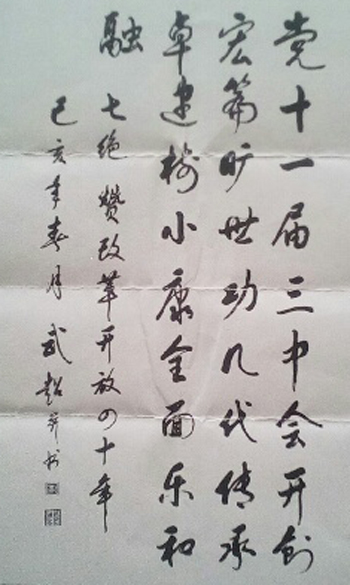 党十一届三中会开创
宏篇旷世功几代传承
卓建树小康全面乐和
融
七绝 赞改革开放四十年
己亥年春月武超并书